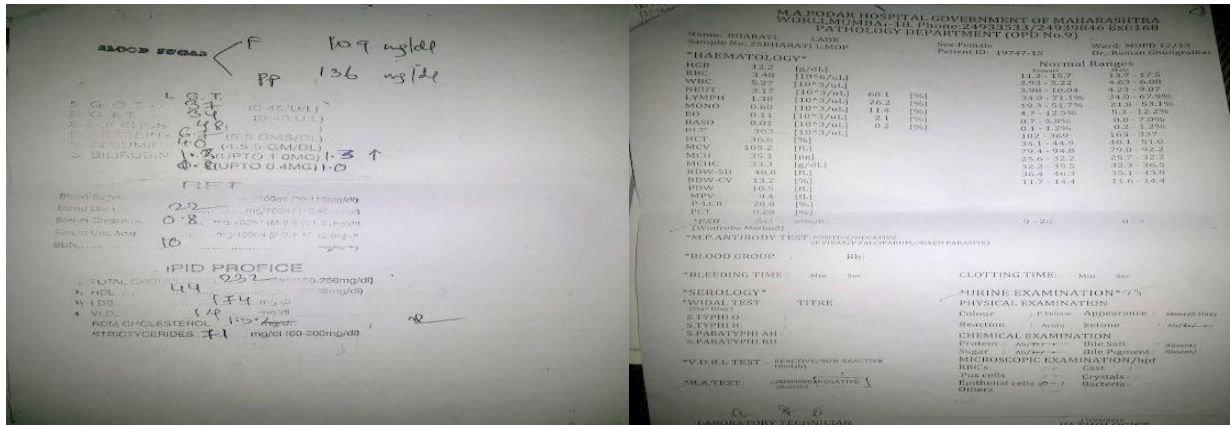 BLOOD SUGAR F 109 mg/dl
PP 136 mg/dl
L. F. T.
S. G. O. T. 37 (0-45/U/L)
34
48
(4-5.5 GM/DL)
S. BILIRUBIN (UPTO 1.0MG) 1.3 ↑
(UPTO 0.4MG) 1.0
RFT
Blood Sugar
Blood Urea 22
Serum Creatinine 0.8
Serum Uric Acid
BUN 10
IPID PROFICE
TOTAL CHOL 232 150-250mg/dl)
HDL 44
LDS 174 mg/dl
VLD. 14 mg/dl
ROM CHOLESTEROL
STRICTYCERIDES 71 mg/dl (60-200mg/dl)
M.A.PODAR HOSPITAL GOVERNMENT OF MAHARASHTRA
WORLI,MUMBAI-18. Phone:24933533/24939846 Ext:168
PATHOLOGY DEPARTMENT (OPD No.9)
Name: BHARATI LADE Sex:Female Ward: MOPD 12/13
Sample No: 25BHARATI L.MOP Patient ID: 19747-15 Dr. Raman Ghungralkar
*HAEMATOLOGY* Normal Ranges
Female Male
HGB 12.2 [g/dL] 11.2 - 15.7 13.7 - 17.5
RBC 3.48 [10^6/uL] 3.93 - 5.22 4.63 - 6.08
WBC 5.27 [10^3/uL] 3.98 - 10.04 4.23 - 9.07
NEUT 3.17 [10^3/uL] 60.1 [%] 34.0 - 71.1% 34.0 - 67.9%
LYMPH 1.38 [10^3/uL] 26.2 [%] 19.3 - 51.7% 21.8 - 53.1%
MONO 0.60 [10^3/uL] 11.4 [%] 4.7 - 12.5% 5.3 - 12.2%
EO 0.11 [10^3/uL] 2.1 [%] 0.7 - 5.8% 0.8 - 7.0%
BASO 0.01 [10^3/uL] 0.2 [%] 0.1 - 1.2% 0.2 - 1.2%
PLT 303 [10^3/uL] 182 - 369 163 - 337
HCT 36.6 [%] 34.1 - 44.9 40.1 - 51.0
MCV 105.2 [fL] 79.4 - 94.8 79.0 - 92.2
MCH 35.1 [pg] 25.6 - 32.2 25.7 - 32.2
MCHC 33.3 [g/dL] 32.2 - 35.5 32.3 - 36.5
RDW-SD 48.8 [fL] 36.4 - 46.3 35.1 - 43.9
RDW-CV 13.2 [%] 11.7 - 14.4 11.6 - 14.4
PDW 10.5 [fL]
MPV 9.4 [fL]
P-LCR 20.8 [%]
PCT 0.28 [%]
*ESR mm/hr 0 - 20
(Wintrobe Method)
*M.P.ANTIBODY TEST POSITIVE/NEGATIVE
(P.VIVAX/P.FALCIPARUM/MIXED PARASITE)
*BLOOD GROUP : Rh:
*BLEEDING TIME : Min Sec CLOTTING TIME: Min Sec
*SEROLOGY* *URINE EXAMINATION*
*WIDAL TEST TITRE PHYSICAL EXAMINATION
Colour : P.Yellow Appearance :
S.TYPHI O
S.TYPHI H Reaction : Acidic Ketone :
S.PARATYPHI AH : CHEMICAL EXAMINATION
S.PARATYPHI BH : Protein : Bile Salt : Absent/
Sugar : Bile Pigment : Absent/
*V.D.R.L TEST : REACTIVE/NON-REACTIVE MICROSCOPIC EXAMINATION/hpf
RBC's : Cast :
Pus cells : Crystals :
*R.A.TEST POSITIVE/NEGATIVE Epithelial cells Bacteria :
Others
LABORATORY TECHNICIAN PATHOLOGIST